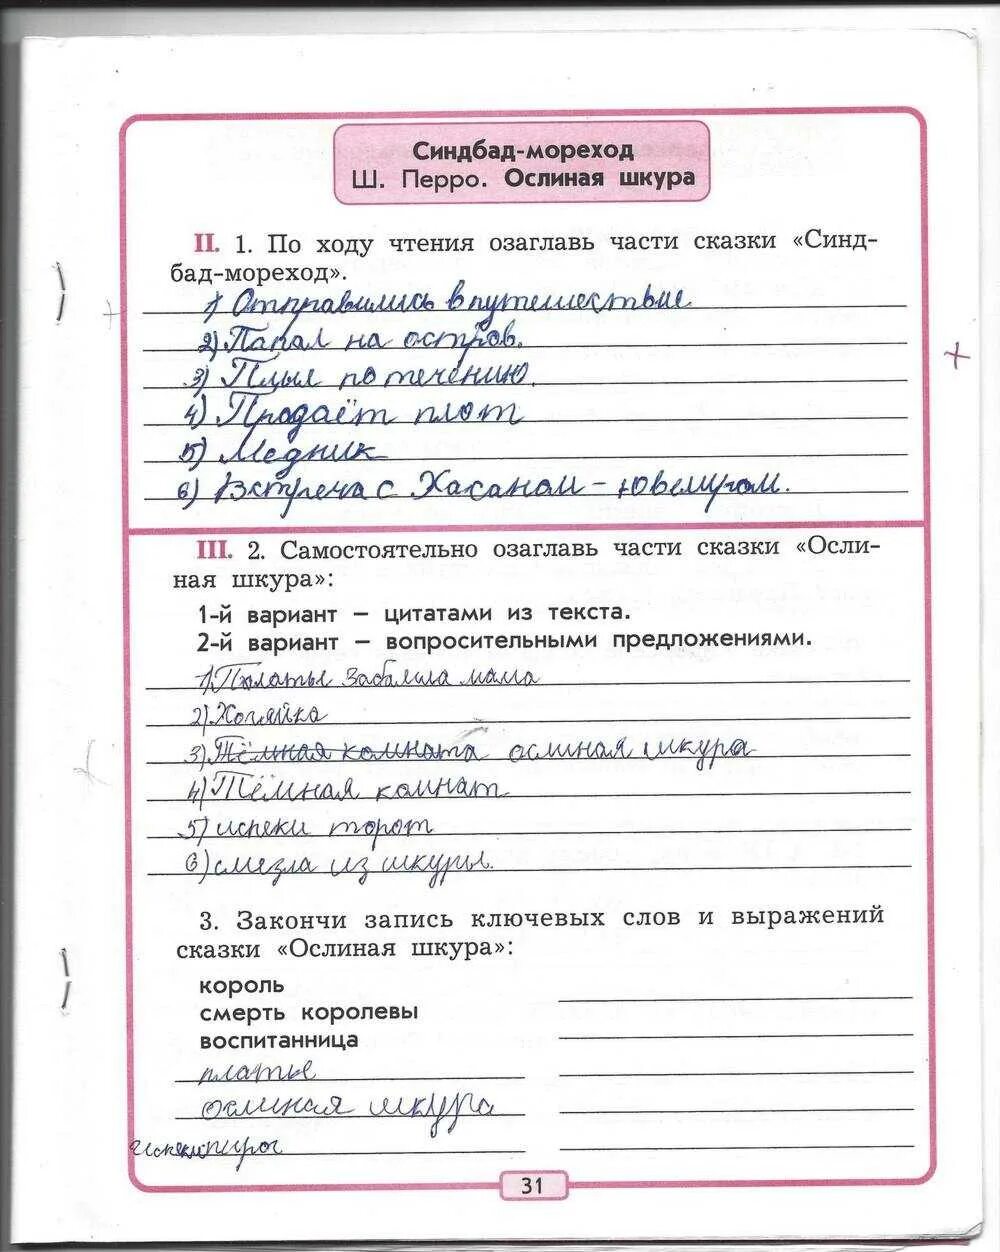 Синдбад-мореход
Ш. Перро. Ослиная шкура
II. 1. По ходу чтения озаглавь части сказки «Синд-
бад-мореход».
1) Отправились в путешествие
2) Попал на остров.
3) Плыл по течению.
4) Продаёт плот
5) Медник
6) Встреча с Хасаном – ювелиром.
III. 2. Самостоятельно озаглавь части сказки «Осли-
ная шкура»:
1-й вариант – цитатами из текста.
2-й вариант – вопросительными предложениями.
1) Платье мама
2) Хозяйка
3) Тёмная комната ослиная шкура
4) Тёмная комнат
5) испеки торот
6) слезла из шкуры.
3. Закончи запись ключевых слов и выражений
сказки «Ослиная шкура»:
король
смерть королевы
воспитанница
платье
ослиная шкура
испеки пирог
31